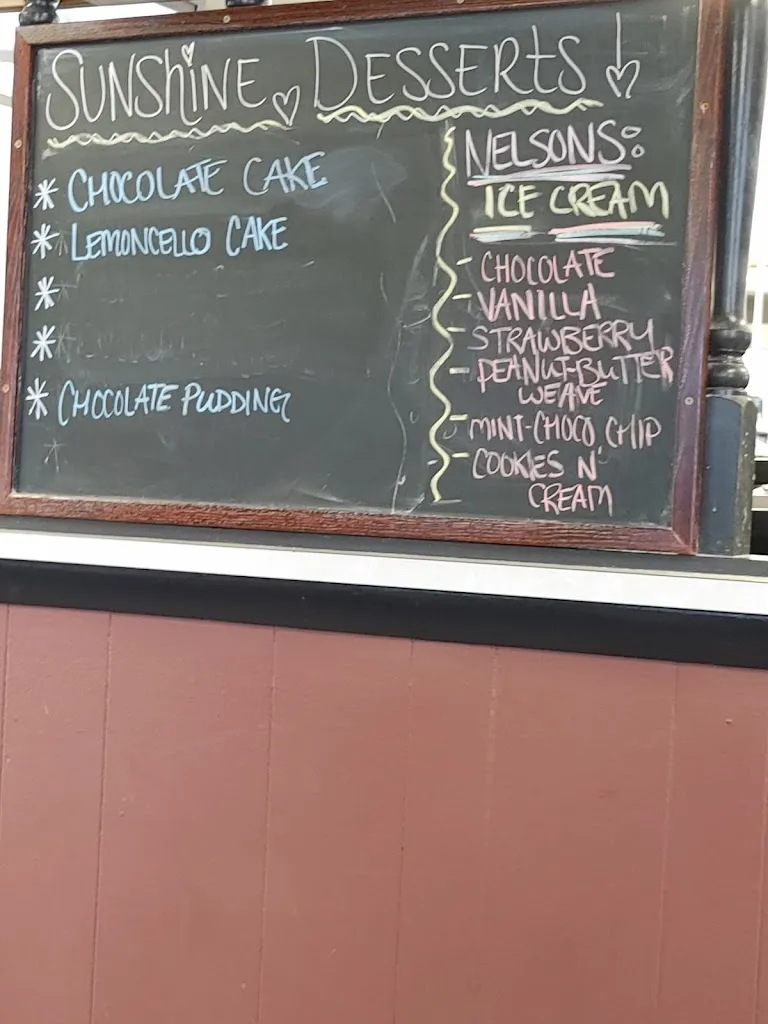 SUNShiNE DESSERtS!
* CHOCOLATE CAKE
* LEMONCELLO CAKE
*
*
* CHOCOLATE PUDDING
NELSONS:
ICE CREAM
- CHOCOLATE
- VANILLA
- STRAWBERRY
- PEANUT-BUTTER
WEAVE
- MINT-CHOCO. CHIP
- COOKIES N'
CREAM